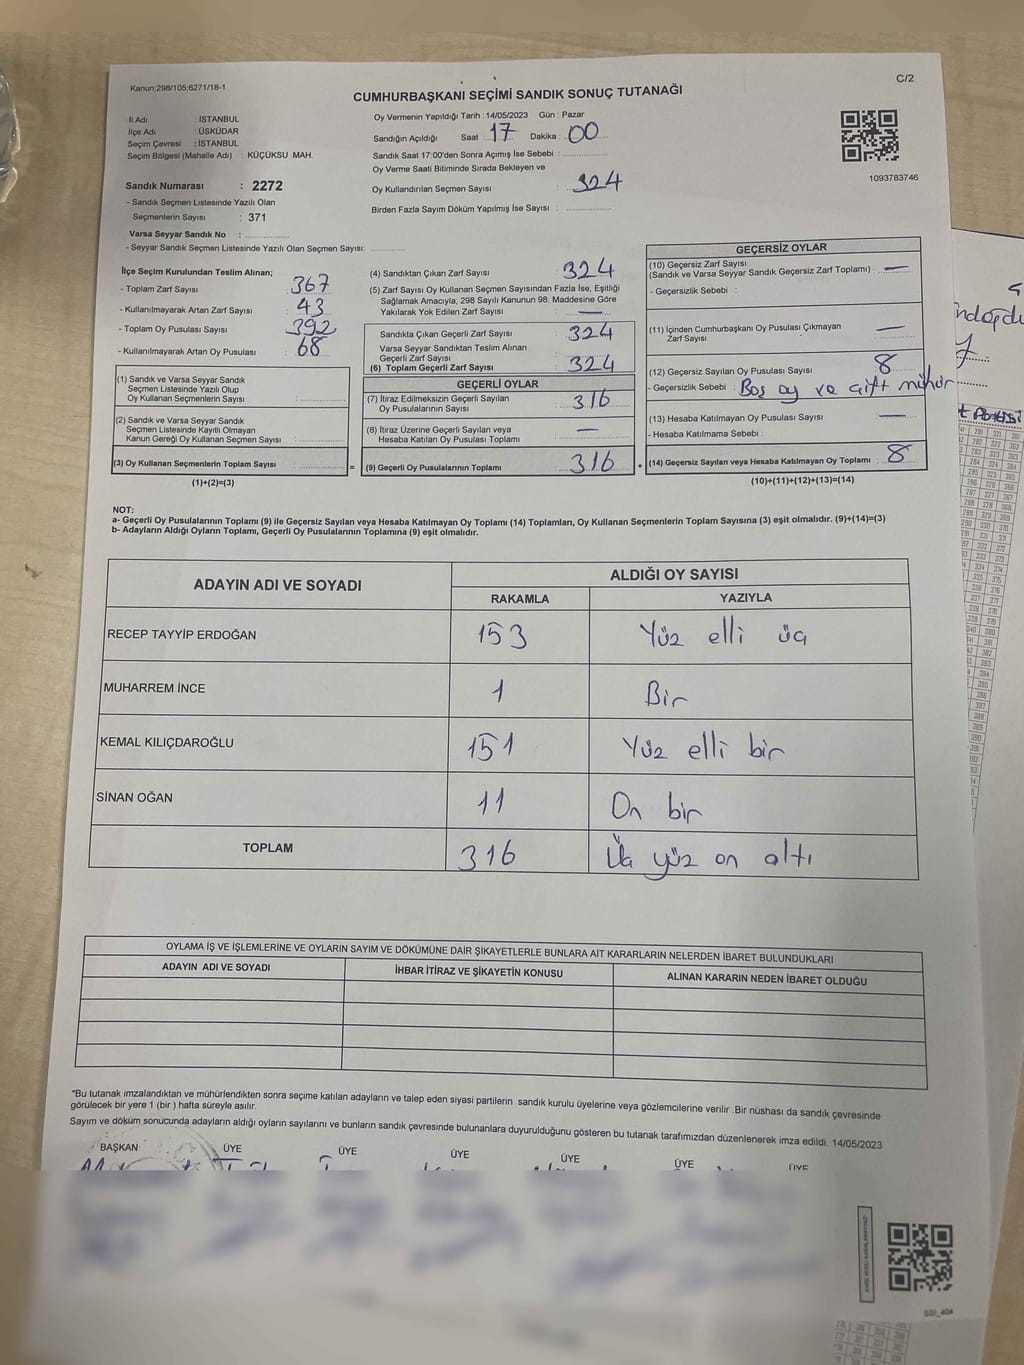 Kanun;298/105;6271/18-1
C/2
CUMHURBAŞKANI SEÇİMİ SANDIK SONUÇ TUTANAĞI
İl Adı : İSTANBUL
İlçe Adı : ÜSKÜDAR
Seçim Çevresi : İSTANBUL
Seçim Bölgesi (Mahalle Adı) : KÜÇÜKSU MAH.
Sandık Numarası : 2272
- Sandık Seçmen Listesinde Yazılı Olan
Seçmenlerin Sayısı : 371
Varsa Seyyar Sandık No :
- Seyyar Sandık Seçmen Listesinde Yazılı Olan Seçmen Sayısı:
Oy Vermenin Yapıldığı Tarih : 14/05/2023 Gün : Pazar
Sandığın Açıldığı Saat 17 Dakika : 00
Sandık Saat 17:00'den Sonra Açımış İse Sebebi :
Oy Verme Saati Bitiminde Sırada Bekleyen ve
Oy Kullandırılan Seçmen Sayısı : 324
Birden Fazla Sayım Döküm Yapılmış İse Sayısı :
1093783746
İlçe Seçim Kurulundan Teslim Alınan;
- Toplam Zarf Sayısı : 367
- Kullanılmayarak Artan Zarf Sayısı : 43
- Toplam Oy Pusulası Sayısı : 392
- Kullanılmayarak Artan Oy Pusulası : 68
(1) Sandık ve Varsa Seyyar Sandık
Seçmen Listesinde Yazılı Olup
Oy Kullanan Seçmenlerin Sayısı :
(2) Sandık ve Varsa Seyyar Sandık
Seçmen Listesinde Kayıtlı Olmayan
Kanun Gereği Oy Kullanan Seçmen Sayısı :
(3) Oy Kullanan Seçmenlerin Toplam Sayısı : =
(1)+(2)=(3)
(4) Sandıktan Çıkan Zarf Sayısı : 324
(5) Zarf Sayısı Oy Kullanan Seçmen Sayısından Fazla İse, Eşitliği
Sağlamak Amacıyla, 298 Sayılı Kanunun 98. Maddesine Göre
Yakılarak Yok Edilen Zarf Sayısı : —
Sandıkta Çıkan Geçerli Zarf Sayısı : 324
Varsa Seyyar Sandıktan Teslim Alınan
Geçerli Zarf Sayısı :
(6) Toplam Geçerli Zarf Sayısı : 324
GEÇERLİ OYLAR
(7) İtiraz Edilmeksizin Geçerli Sayılan
Oy Pusulalarının Sayısı : 316
(8) İtiraz Üzerine Geçerli Sayılan veya
Hesaba Katılan Oy Pusulası Toplamı : —
(9) Geçerli Oy Pusulalarının Toplamı : 316 +
GEÇERSİZ OYLAR
(10) Geçersiz Zarf Sayısı
(Sandık ve Varsa Seyyar Sandık Geçersiz Zarf Toplamı) : —
- Geçersizlik Sebebi :
(11) İçinden Cumhurbaşkanı Oy Pusulası Çıkmayan
Zarf Sayısı : —
(12) Geçersiz Sayılan Oy Pusulası Sayısı : 8
- Geçersizlik Sebebi : Boş oy ve çift mühür
(13) Hesaba Katılmayan Oy Pusulası Sayısı : —
- Hesaba Katılmama Sebebi :
(14) Geçersiz Sayılan veya Hesaba Katılmayan Oy Toplamı : 8
(10)+(11)+(12)+(13)=(14)
NOT:
a- Geçerli Oy Pusulalarının Toplamı (9) ile Geçersiz Sayılan veya Hesaba Katılmayan Oy Toplamı (14) Toplamları, Oy Kullanan Seçmenlerin Toplam Sayısına (3) eşit olmalıdır. (9)+(14)=(3)
b- Adayların Aldığı Oyların Toplamı, Geçerli Oy Pusulalarının Toplamına (9) eşit olmalıdır.
ADAYIN ADI VE SOYADI
ALDIĞI OY SAYISI
RAKAMLA YAZIYLA
RECEP TAYYİP ERDOĞAN 153 Yüz elli üç
MUHARREM İNCE 1 Bir
KEMAL KILIÇDAROĞLU 151 Yüz elli bir
SİNAN OĞAN 11 On bir
TOPLAM 316 Üç yüz on altı
OYLAMA İŞ VE İŞLEMLERİNE VE OYLARIN SAYIM VE DÖKÜMÜNE DAİR ŞİKAYETLERLE BUNLARA AİT KARARLARIN NELERDEN İBARET BULUNDUKLARI
ADAYIN ADI VE SOYADI İHBAR İTİRAZ VE ŞİKAYETİN KONUSU ALINAN KARARIN NEDEN İBARET OLDUĞU
*Bu tutanak imzalandıktan ve mühürlendikten sonra seçime katılan adayların ve talep eden siyasi partilerin sandık kurulu üyelerine veya gözlemcilerine verilir .Bir nüshası da sandık çevresinde
görülecek bir yere 1 (bir ) hafta süreyle asılır.
Sayım ve döküm sonucunda adayların aldığı oyların sayılarını ve bunların sandık çevresinde bulunanlara duyurulduğunu gösteren bu tutanak tarafımızdan düzenlenerek imza edildi. 14/05/2023
BAŞKAN ÜYE ÜYE ÜYE ÜYE ÜYE ÜYE